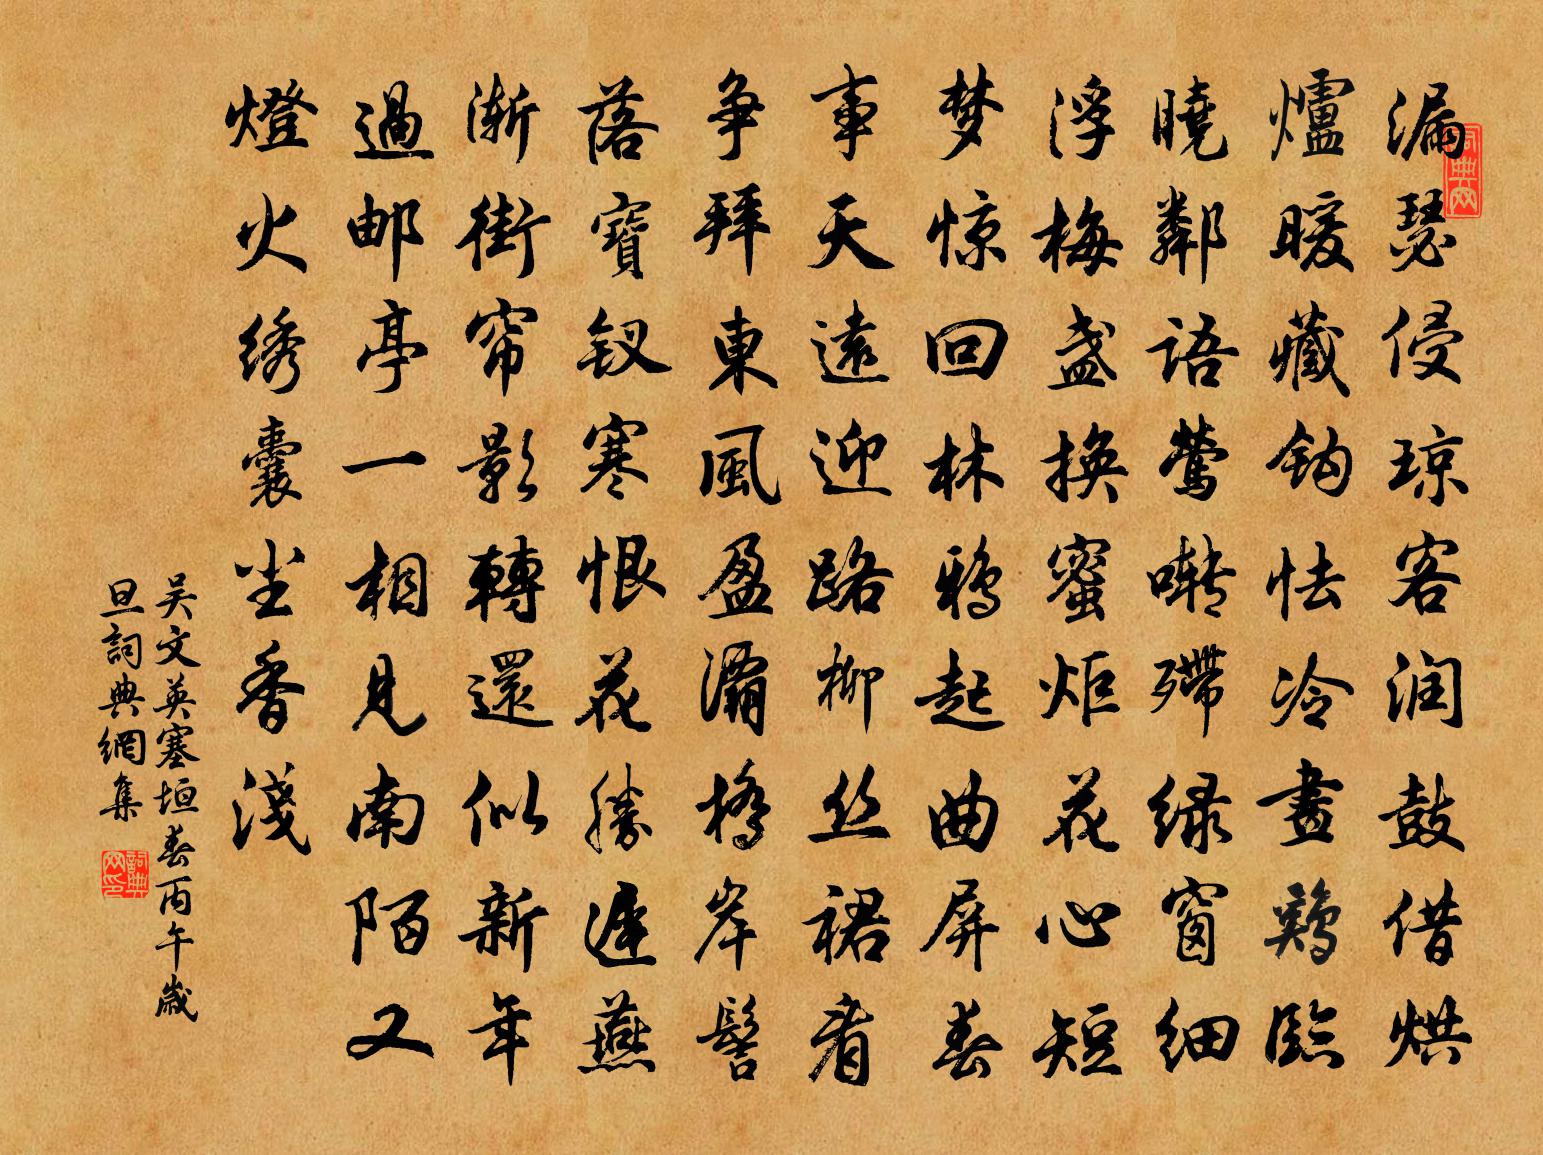 漏瑟侵琼客润鼓借烘
爐暖藏鈎怯冷畫鷄臨
曉鄰語鶯囀殢绿窗细
浮梅盏换蜜炬花心短
梦惊回林鸦起曲屏春
事天遠迎路柳丝裙看
争拜東風盈灞橋岸髻
落寶钗寒恨花勝遲燕
渐街帘影轉還似新年
過邮亭一相見南陌又
燈火绣囊尘香淺
吴文英塞垣春丙午歲
旦詞典網集
詞典网
詞典网印